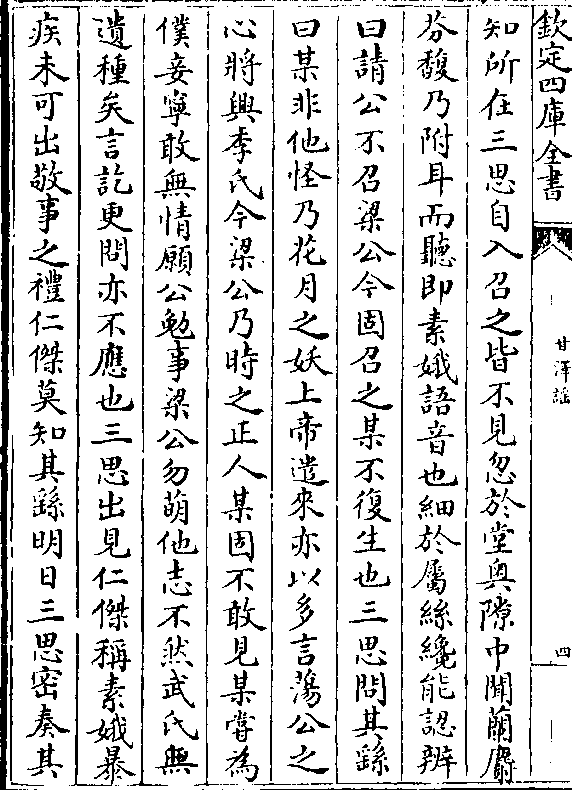 欽定四庫全書
甘澤謠
四
知所在三思自入召之皆不見忽於堂奥隙中聞蘭麝
芬馥乃附耳而聽即素娥語音也細於屬絲纔能認辨
曰請公不召梁公今固召之某不復生也三思問其繇
曰某非他怪乃花月之妖上帝遣來亦以多言蕩公之
心將興李氏今梁公乃時之正人某固不敢見某嘗為
僕妾寧敢無情願公勉事梁公勿萌他志不然武氏無
遺種矣言訖更問亦不應也三思出見仁傑稱素娥暴
疾未可出敬事之禮仁傑莫知其繇明日三思密奏其